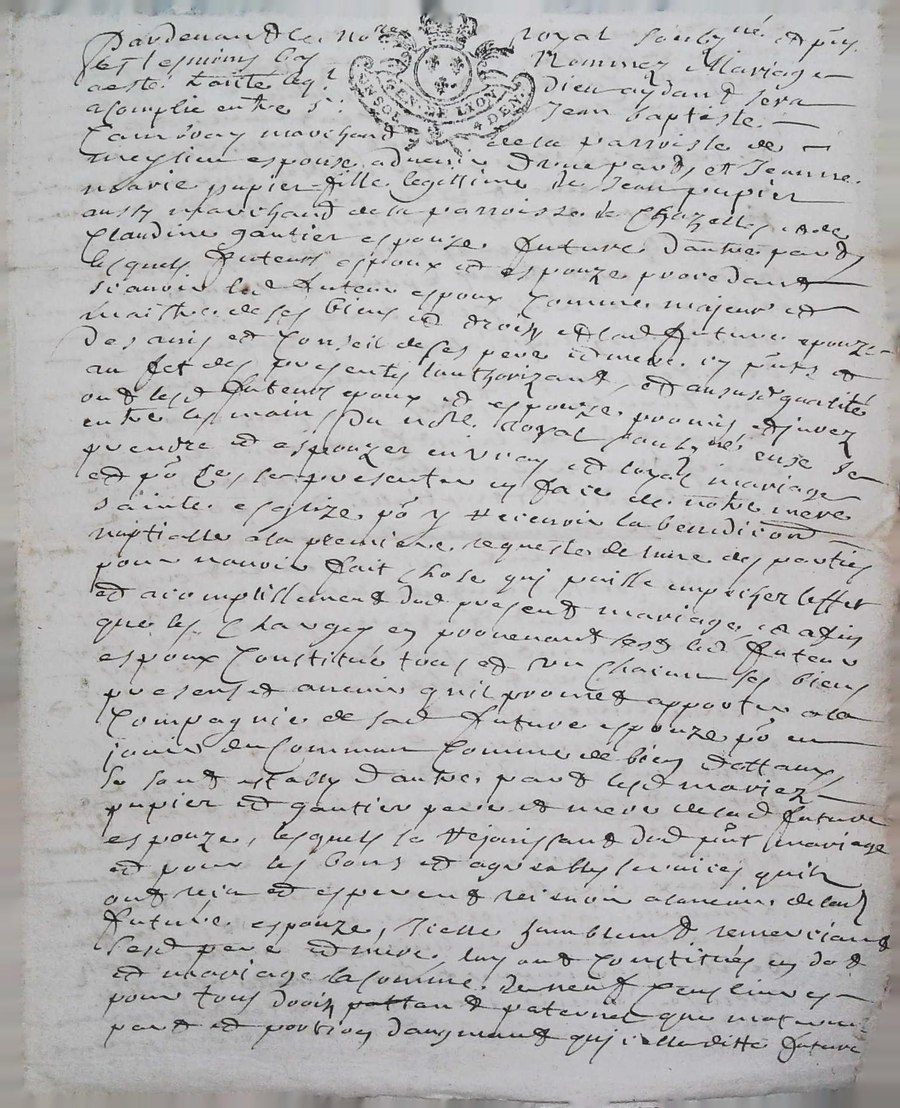 Pardevant le no.re royal soubz.né et pñs
et tesmoins bas nommez Mariage
a esté traité et dieu aydant sera
acomplie entre s.r Jean baptiste
EN SOL GEN. DE LYON 4 DEN.
marchand de la parroisse de
espoux advenir d'une part, et Jeanne
marie pupier fille legittime de Jean pupier
aussy marchand de la parroisse de Chazelles et de
Claudine gautier espouze future d'autre part
lesquels futeurs espoux et espouze procedant
scavoir led futeur espoux Comme majeur et
maistre de ses biens et droitz et lad future espouze
Des avis et Conseil de ses pere et mere icy pñts et
au fet des presentes l'authorizant, et aus susd qualités
ont lesd futeurs epoux et espouze promis et jurez
entre les mains Du notre. royal soubz.né de se
prendre et espouzer en vray et loyal mariage
et po.r ce se presenter en face de nôtre mere
sainte esglize po.r y recevoir la benediction
nuptialle a la premiere requeste de l'une des parties
pour n'avoir fait chose qui puisse empecher l'effet
et acomplissement dud present mariage, et affin
que les Charges en provenant led futeur
espoux Constitué tous et un Chacun ses biens
presens et avenir qu'il promet apporter a la
Compagnie de sad future espouze po.r en
jouir en Commun Comme de biens dottaux,
se sont establys d'autre part lesd mariez
pupier et gautier pere et mere de lad future
espouze, lesquels se rejouissant dud pñt mariage
et pour les bons et agreables services quils
ont receu et esperent recevoir a l'avenir de lad
future espouze, Icelle humblement remerciant
sesd pere et mere, luy ont Constitués en dot
et mariage la somme de neuf Cens livres
pour tous droitz tant paternel que maternel
part et portion d'augment qui a laditte future